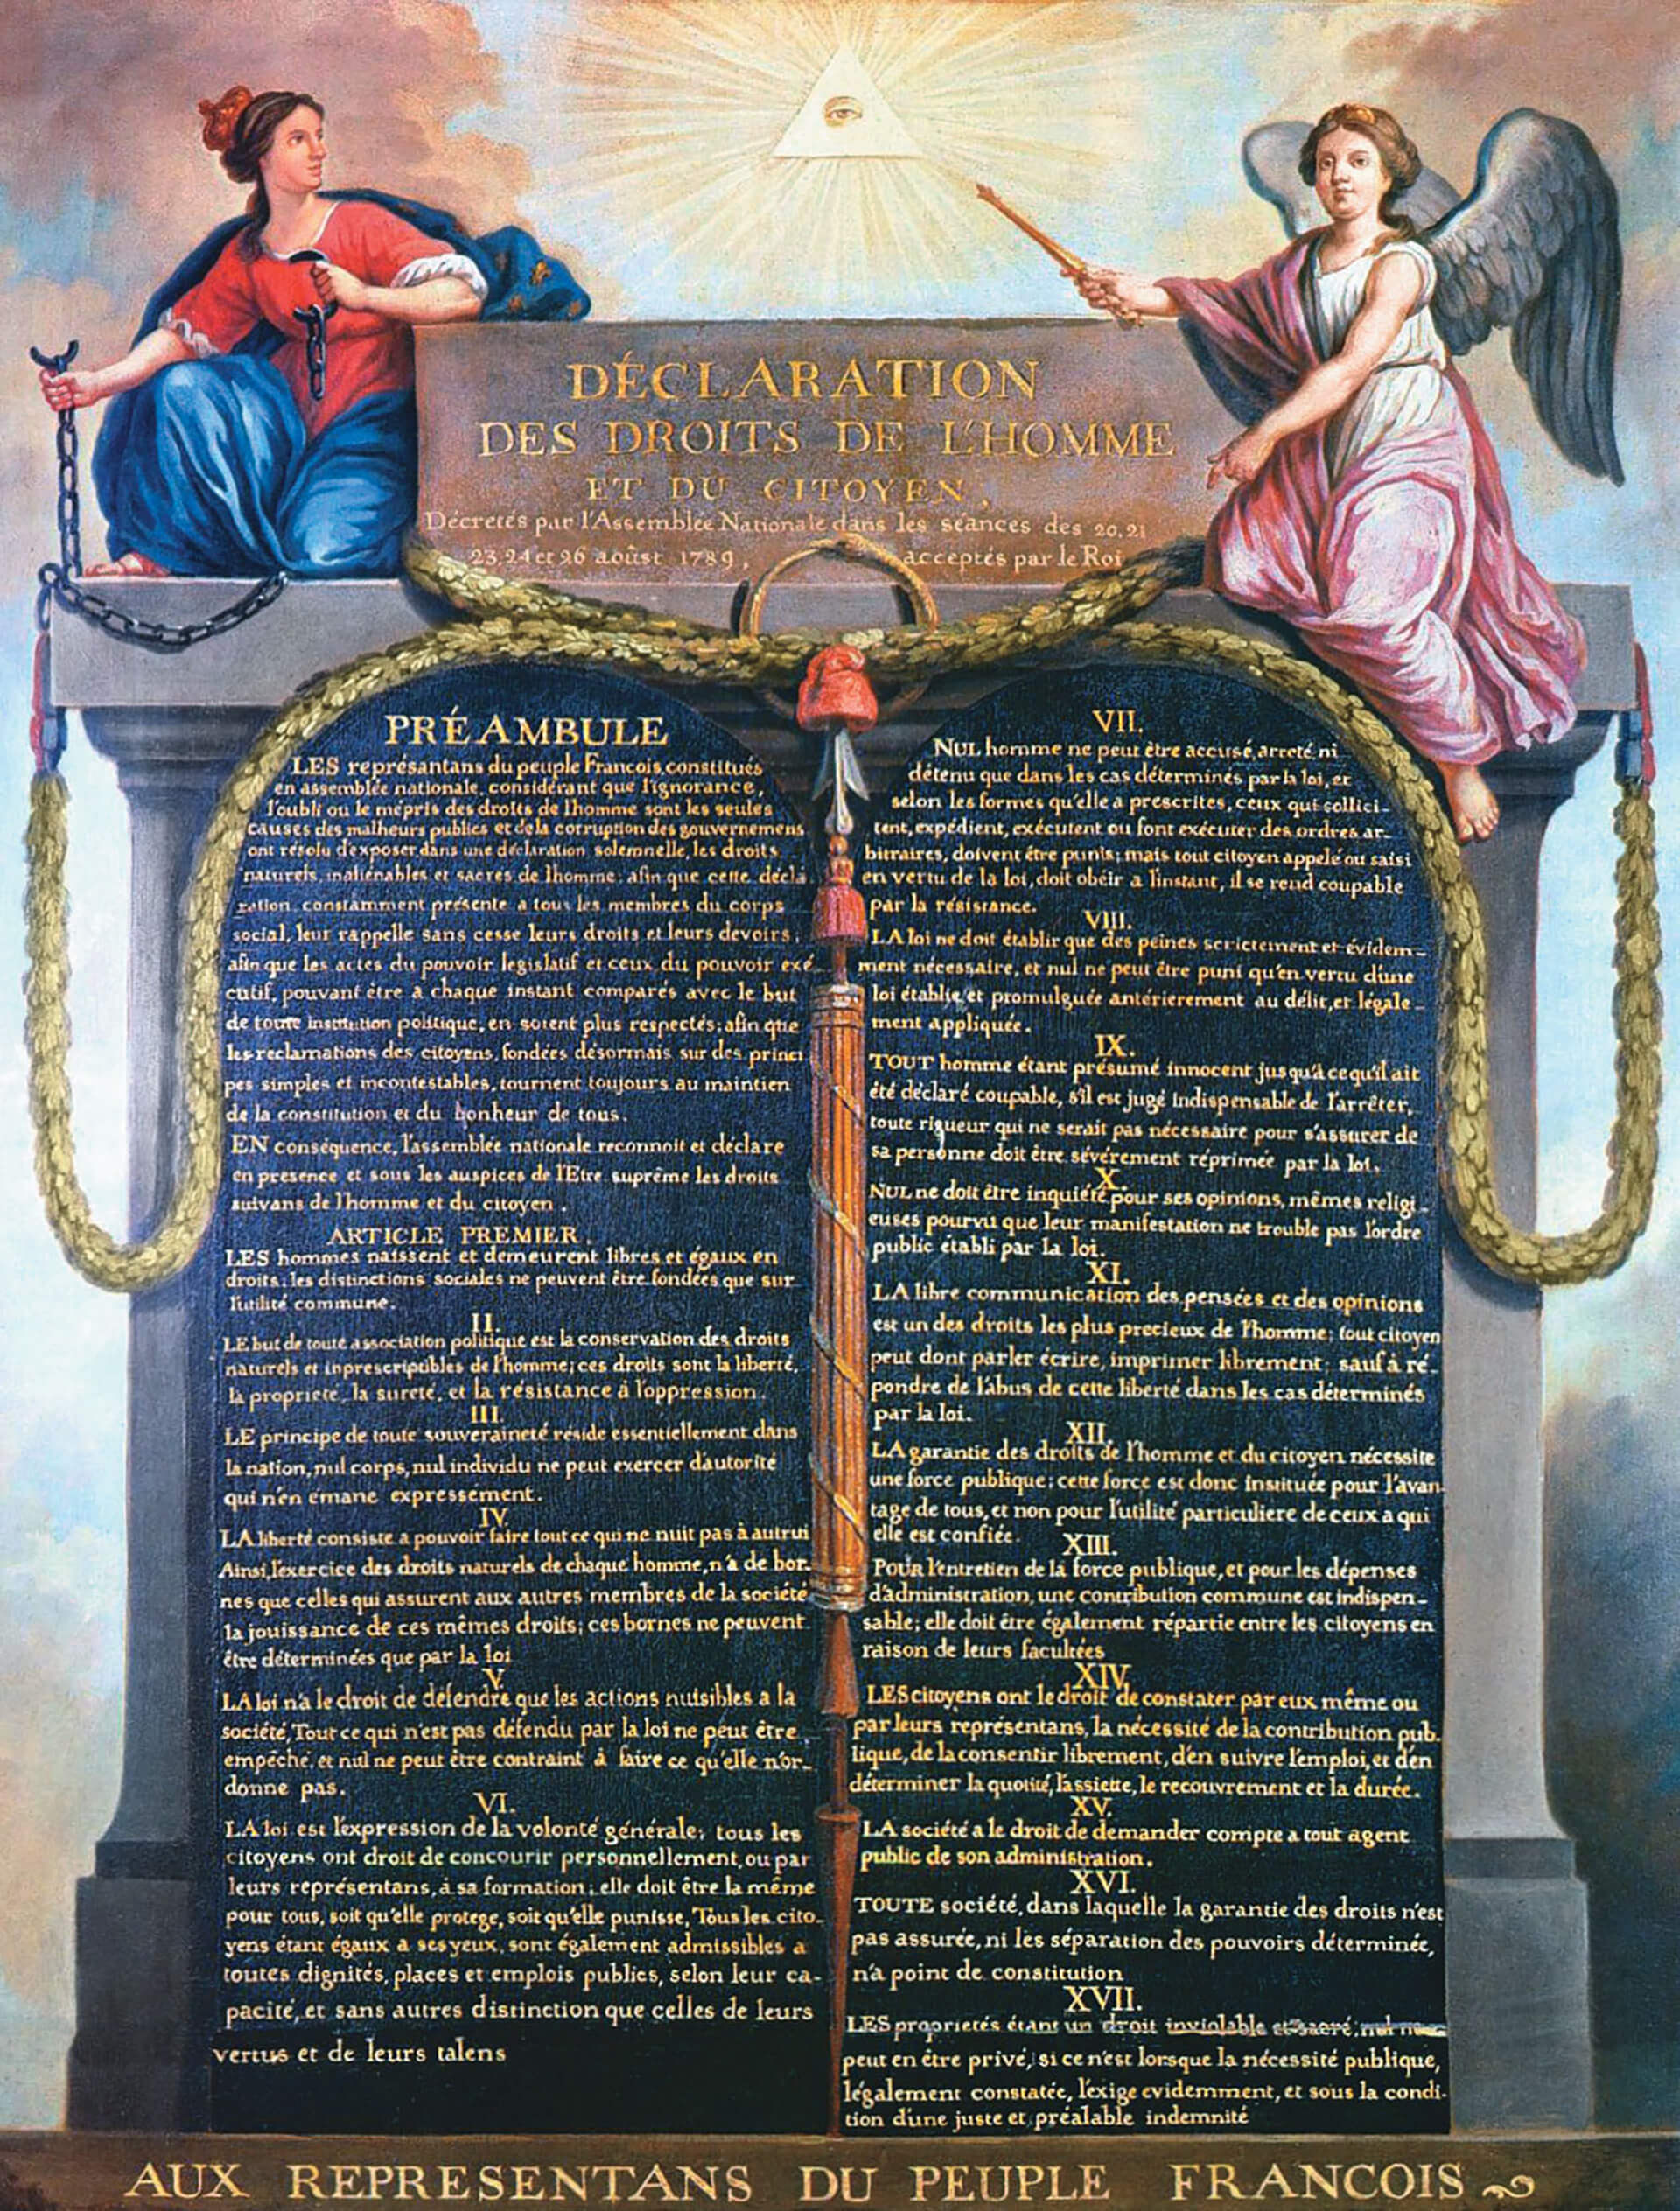 DÉCLARATION
DES DROITS DE L'HOMME
ET DU CITOYEN,
Décretés par l'Assemblée Nationale dans les séances des 20, 21
23, 24 et 26 aoûst 1789, acceptés par le Roi
PRÉAMBULE
LES représantans du peuple Francois, constitués
en assemblée nationale, considérant que l'ignorance,
l'oubli ou le mépris des droits de l'homme sont les seules
causes des malheurs publics et de la corruption des gouvernemens
ont résolu d'exposer dans une déclaration solemnelle, les droits
naturels, inaliénables et sacrés de l'homme; afin que cette décla
ration constamment présente a tous les membres du corps
social, leur rappelle sans cesse leurs droits et leurs devoirs;
afin que les actes du pouvoir legislatif et ceux du pouvoir exé-
cutif, pouvant être a chaque instant comparés avec le but
de toute institution politique, en soient plus respectés; afin que
les reclamations des citoyens, fondées désormais sur des princi
pes simples et incontestables, tournent toujours au maintien
de la constitution et du bonheur de tous.
EN conséquence, l'assemblée nationale reconnoit et déclare
en presence et sous les auspices de l'Etre suprême les droits
suivans de l'homme et du citoyen.
ARTICLE PREMIER.
LES hommes naissent et demeurent libres et égaux en
droits; les distinctions sociales ne peuvent être fondées que sur
l'utilité commune.
II.
LE but de toute association politique est la conservation des droits
naturels et inprescriptibles de l'homme; ces droits sont la liberté,
la propriété, la sureté, et la résistance à l'oppression.
III.
LE principe de toute souveraineté réside essentiellement dans
la nation, nul corps, nul individu ne peut exercer d'autorité
qui n'en émane expressément.
IV.
LA liberté consiste a pouvoir faire tout ce qui ne nuit pas à autrui
Ainsi, l'exercice des droits naturels de chaque homme, n'a de bor-
nes que celles qui assurent aux autres membres de la société
la jouissance de ces mêmes droits; ces bornes ne peuvent
être déterminées que par la loi
V.
LA loi n'a le droit de défendre que les actions nuisibles a la
société, Tout ce qui n'est pas défendu par la loi ne peut être
empêché, et nul ne peut être contraint à faire ce qu'elle n'or-
donne pas.
VI.
LA loi est l'expression de la volonté générale; tous les
citoyens ont droit de concourir personnellement, ou par
leurs représentans, à sa formation; elle doit être la même
pour tous, soit qu'elle protege, soit qu'elle punisse, Tous les cito-
yens étant égaux a ses yeux, sont également admissibles a
toutes dignités, places et emplois publics, selon leur ca-
pacité, et sans autres distinction que celles de leurs
vertus et de leurs talens
VII.
NUL homme ne peut être accusé, arreté ni
détenu que dans les cas déterminés par la loi, et
selon les formes qu'elle a prescrites, ceux qui sollici-
tent, expédient, exécutent ou font exécuter des ordres ar-
bitraires, doivent être punis; mais tout citoyen appelé ou saisi
en vertu de la loi, doit obéir a l'instant, il se rend coupable
par la résistance.
VIII.
LA loi ne doit établir que des peines scrictement et évidem-
ment nécessaire, et nul ne peut être puni qu'en vertu d'une
loi établie, et promulguée antérierement au délit, et légale-
ment appliquée.
IX.
TOUT homme étant présumé innocent jusqu'à ce qu'il ait
été déclaré coupable, s'il est jugé indispensable de l'arrêter,
toute rigueur qui ne serait pas nécessaire pour s'assurer de
sa personne doit être sévérement réprimée par la loi.
X.
NUL ne doit être inquiété pour ses opinions, mêmes religi-
euses pourvu que leur manifestation ne trouble pas l'ordre
public établi par la loi.
XI.
LA libre communication des pensées et des opinions
est un des droits les plus precieux de l'homme; tout citoyen
peut dont parler écrire, imprimer librement; sauf à ré-
pondre de l'abus de cette liberté dans les cas déterminés
par la loi.
XII.
LA garantie des droits de l'homme et du citoyen nécessite
une force publique; cette force est donc instituée pour l'avan-
tage de tous, et non pour l'utilité particuliere de ceux a qui
elle est confiée.
XIII.
POUR l'entretien de la force publique, et pour les dépenses
d'administration, une contribution commune est indispen-
sable; elle doit être également répartie entre les citoyens en
raison de leurs facultées
XIV.
LES citoyens ont le droit de constater par eux même ou
par leurs représentans, la nécessité de la contribution pub-
lique, de la consentir librement, d'en suivre l'emploi, et d'en
déterminer la quotité, l'assiette, le recouvrement et la durée.
XV.
LA société a le droit de demander compte a tout agent
public de son administration.
XVI.
TOUTE société, dans laquelle la garantie des droits n'est
pas assurée, ni les séparation des pouvoirs déterminée,
n'a point de constitution
XVII.
LES proprietés étant un droit inviolable et sacré, nul ne
peut en être privé, si ce n'est lorsque la nécessité publique,
légalement constatée, l'exige evidemment, et sous la condi-
tion d'une juste et préalable indemnité
AUX REPRESENTANS DU PEUPLE FRANCOIS